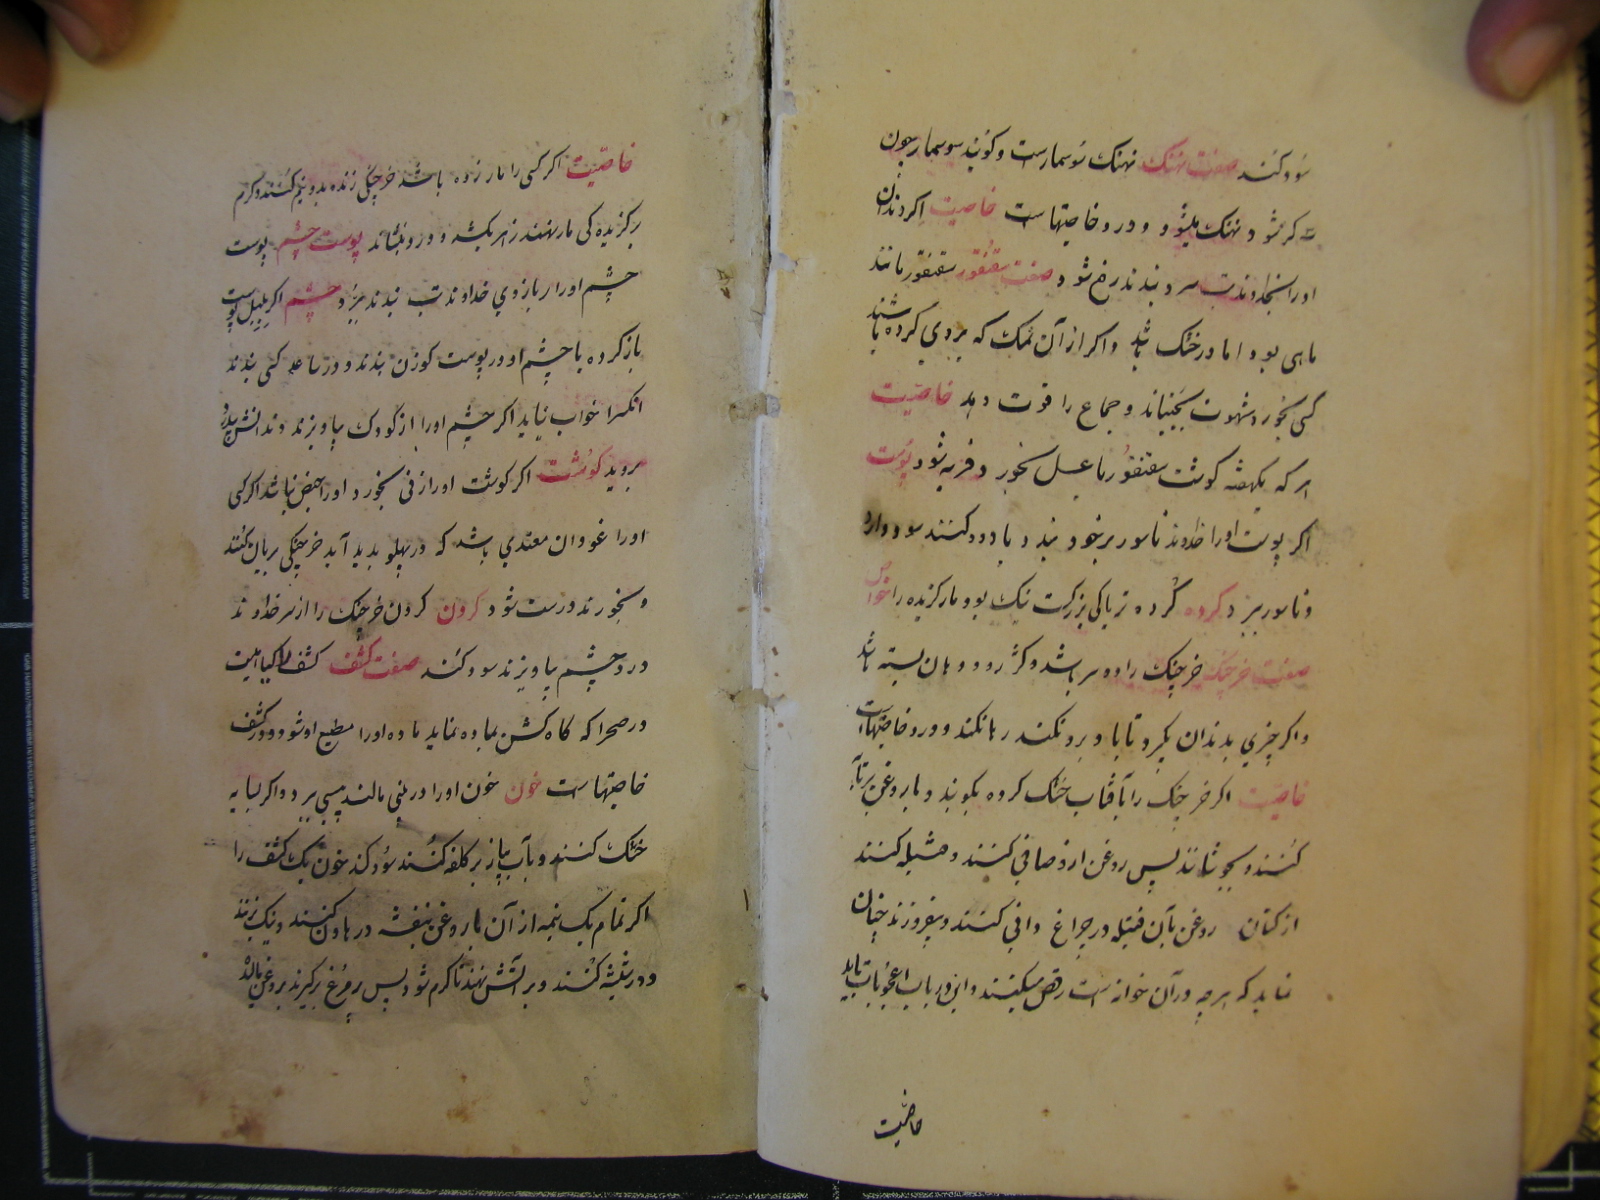 سود کند صفت نهنک نهنک سوسمارست و کویند سوسمار چون
کر شود نهنک میشود و درو خاصیتها است خاصیت اکر دندان
او را بخداوند تب سرد بندند رفع شود صفت سقنقور سقنقور مانند
ماهی بود اما در خشک باشد و اکر از آن نمک که بر وی کرده باشند
کسی بخورد شهوت بجنباند و جماع را قوت دهد خاصیت
هر که یکهفته کوشت سقنقور با عسل بخورد فربه شود پوست
اکر پوست او را خداوند ناسور بر خود بندد یا دود کنند سود دارد
و ناسور ببرد کرده کرده تریاکی بزرکست نیک بود مار کزیده را خواص
صفت خرچنک خرچنک را ده سر باشد و کژ رود و دهان بسته باشد
و اکر چیزی بدندان بگیرد تا با و برد نکند رها نکند و درو خاصیتهاست
خاصیت اکر خرچنک را بآفتاب خشک کرده بکوبند و با روغن برتابه
کنند و بجوشانند پس روغن ازو صافی کنند و فتیله کنند
از کتان روغن بآن فتیله در چراغ دانی کنند و بیفروزند چنان
نماید که هر چه در آن خوانه است رقص میکنند و این در باب اعجوبات بیاید
خاصیت
خاصیت اکر کسی را مار زده باشد خرچنکی زنده بدو نیم کنند و کرم
بر کزیده کی مار نهند زهر بکشد و درو بنشاند پوست چشم پوست
چشم او را بر بازوی خداوند تب بندند ببرد چشم اکر بلبل پوست
باز کرده با چشم او در پوست کوزن بندند و در ساعد کسی بندند
آنکس را خواب نیاید اکر چشم او را از کودک بیاویزند دندانش بی درد
بروید کوشت اکر کوشت او را زنی بخورد او را حیض نباشد اکر کسی
او را غودان معتدی باشد که در پهلو پدید آید خرچنکی بریان کنند
و بخورند درست شود کردن کردن خرچنک را از سر خداوند
درد چشم بیاویزند سود کند صفت کشف کشف را کیاهیست
در صحرا که کاه کشن بماده نماید ماده او را مطیع او شود و در کشف
خاصیتها است خون خون او را در بینی مالند پیسی ببرد و اکر بسایه
خشک کنند و بآب پیاز بر کلفه کنند سود کند خون یک کشف را
اکر تمام یک نیمه از آن با روغن بنفشه در هاون کنند و نیک بزنند
و در شیشه کنند و بر آتش نهند تا کرم شود پس پر مرغ برکیرند بر روغن مالند